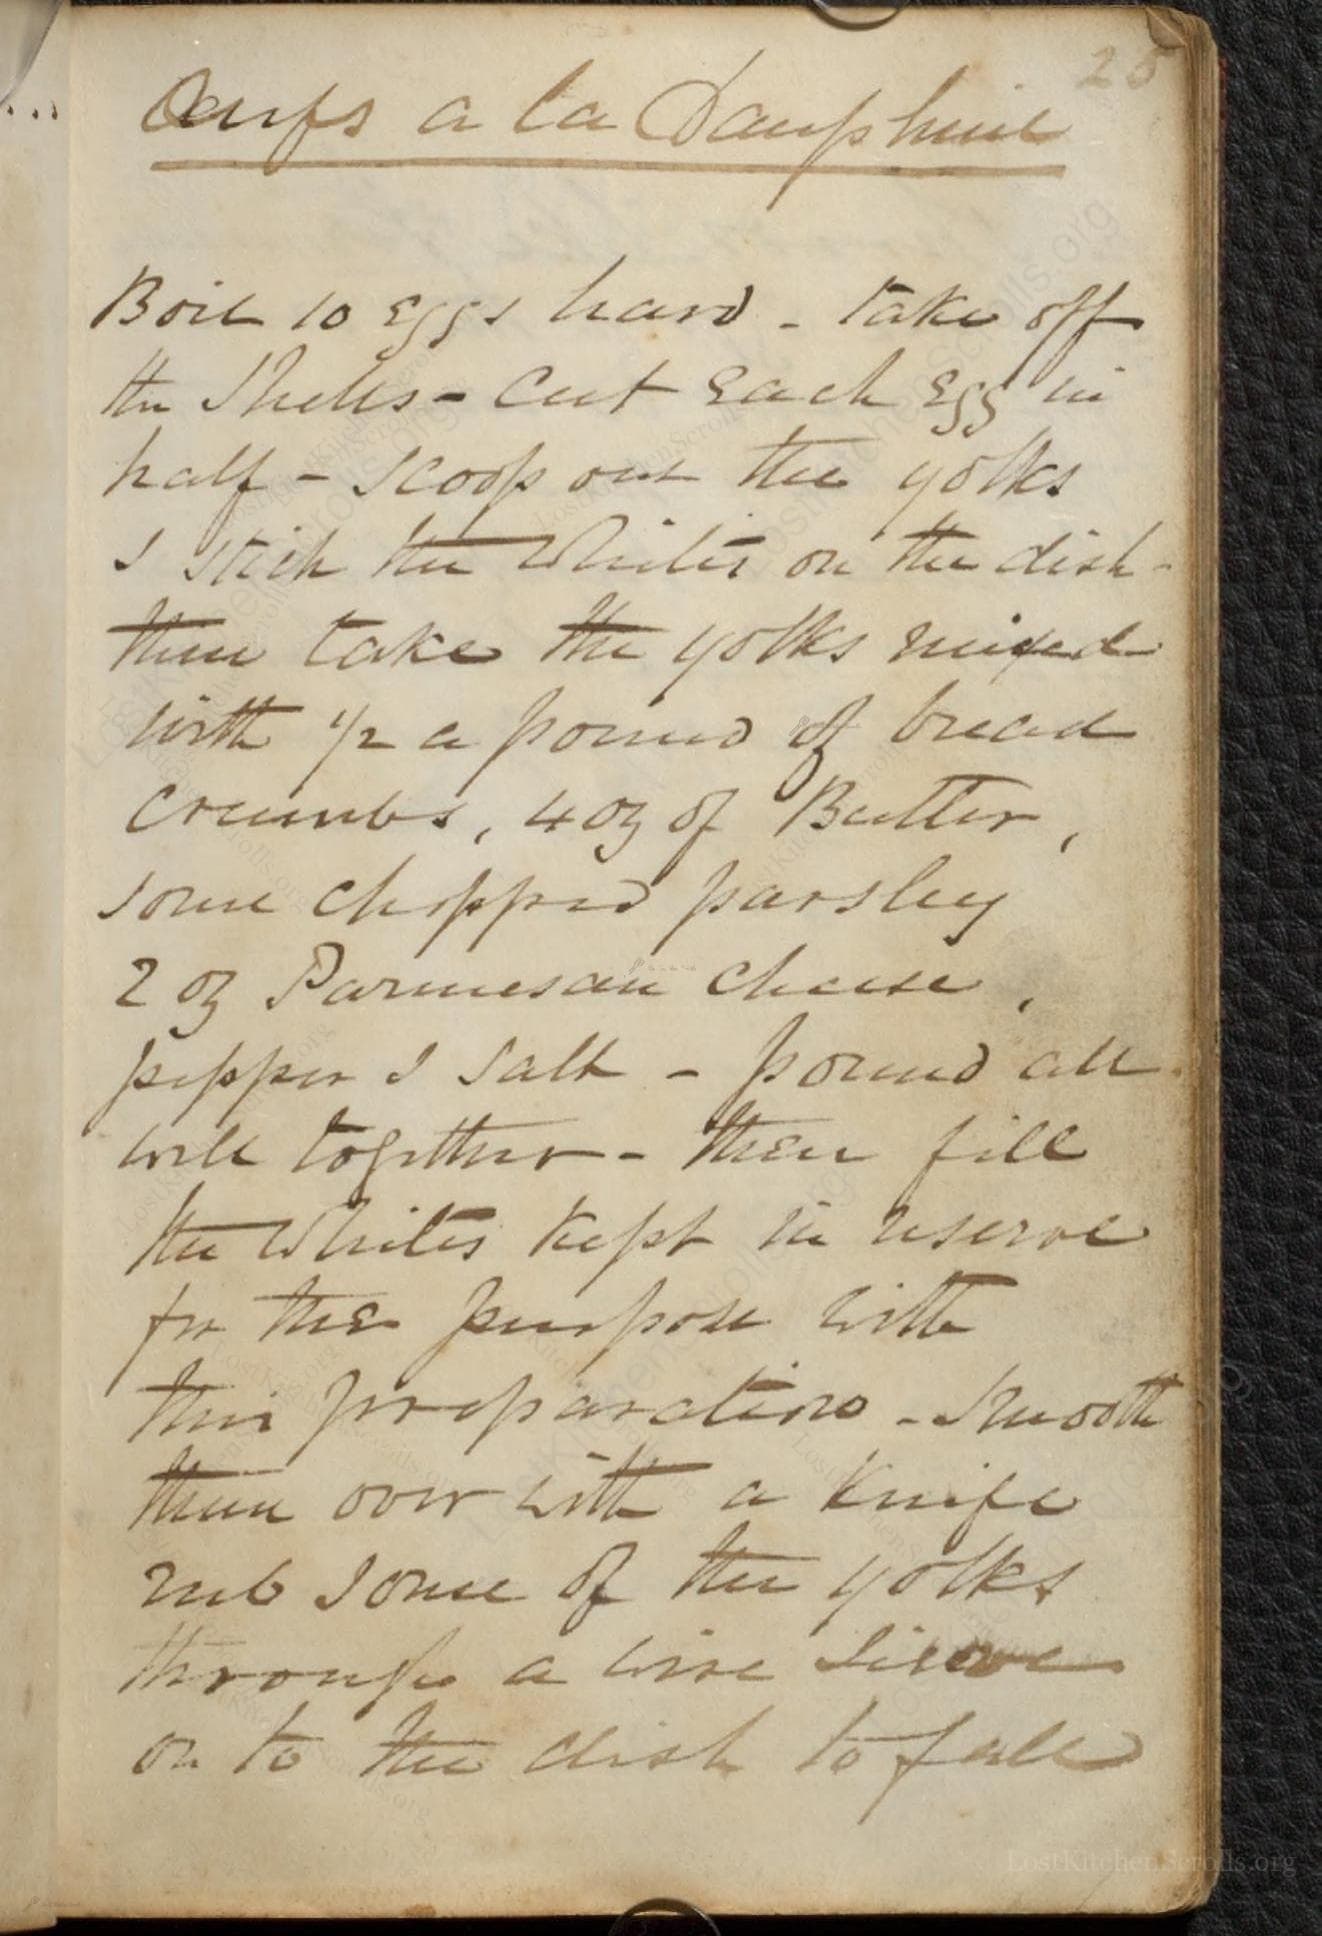 25
Oeufs a la Dauphine
Boil 10 Eggs hard - take off
the Shells - Cut Each Egg in
half - Scoop out the yolks
& stick the Whites on the dish -
then take the yolks mixed
with 1/2 a pound of bread
Crumbs, 4 oz of Butter,
some chopped parsley
2 oz Parmesan Cheese,
pepper & Salt - pound all
well together - then fill
the Whites kept in reserve
for the purpose with
this preparation - Smooth
them over with a Knife
rub Some of the yolks
through a wire Sieve
on to the dish to fall
LostKitchenScrolls.org